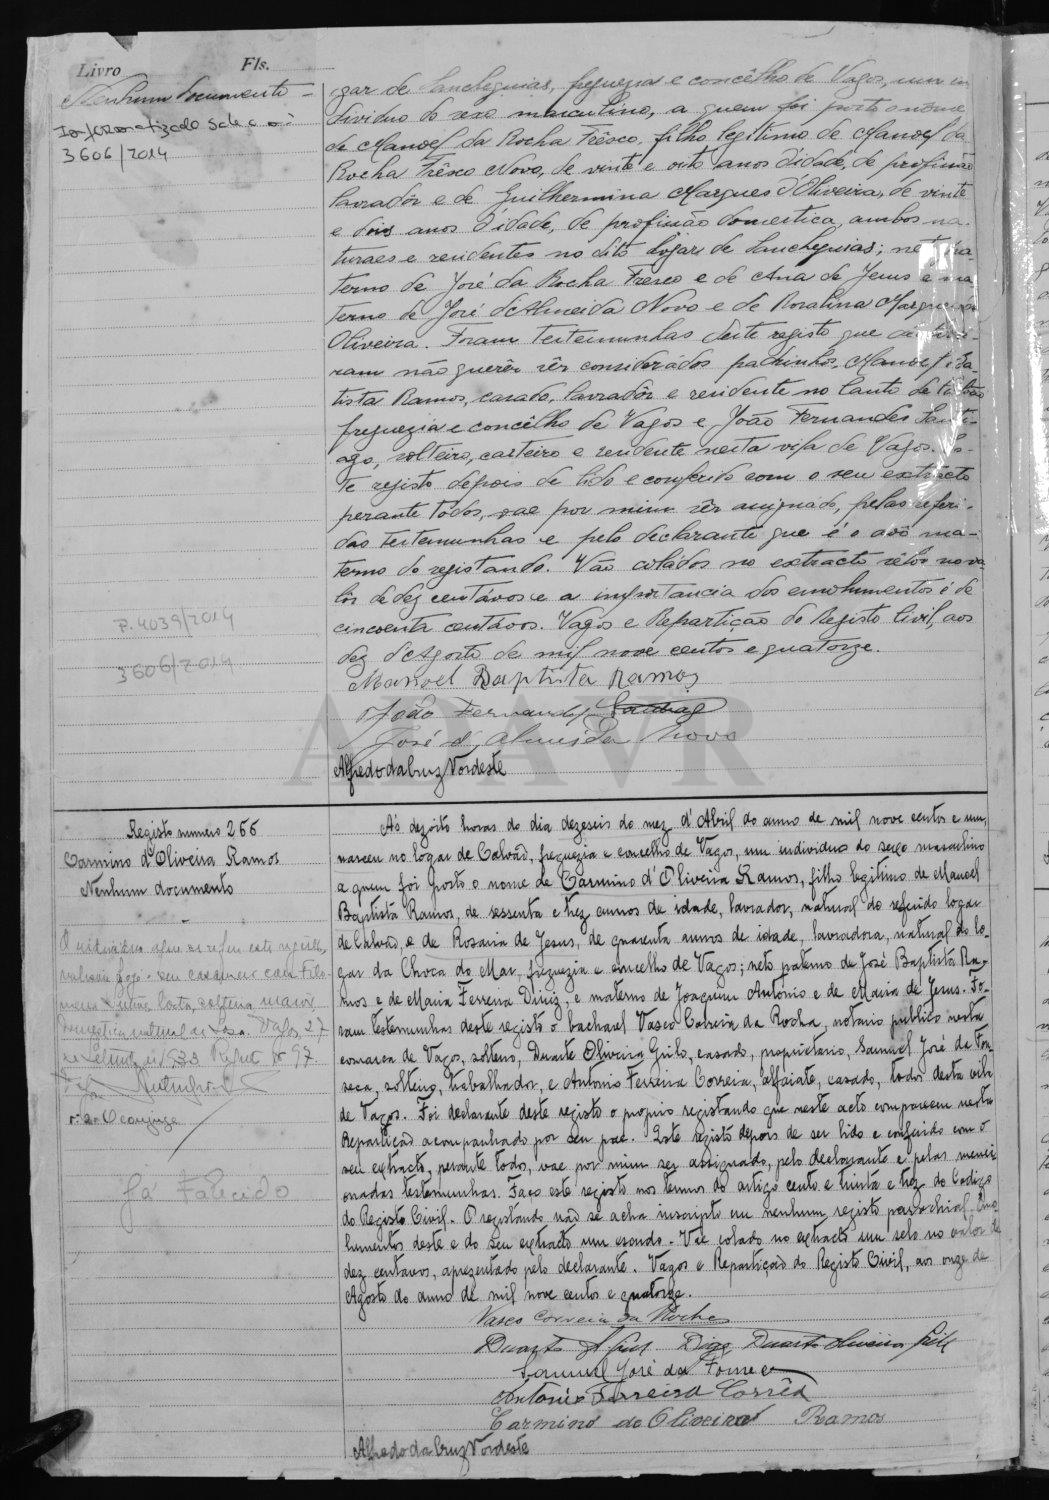 Livro Fls.
Nenhum documento
Informatizado sob o nº
3606/2014
gar de Sanchequias, freguezia e concêlho de Vagos, um in-
dividuo do sexo masculino, a quem foi posto o nome
de Manoel da Rocha Frêsco, filho legitimo de Manoel da
Rocha Frêsco Novo, de vinte e oito anos d'idade, de profissão
lavradôr e de Guilhermina Marques d'Oliveira, de vinte
e dois anos d'idade, de profissão domestica, ambos na-
turaes e residentes no dito logar de Sanchequias; neto pa-
terno de José da Rocha Fresco e de Ana de Jesus e ma-
terno de José d'Almeida Novo e de Rosalina Marques
Oliveira. Foram testemunhas deste registo que
ram não querêr sêr considerádos padrinhos, Manoel Ba-
tista Ramos, casado, lavradôr e residente no Canto de
freguezia e concêlho de Vagos e João Fernandes Santi-
ago, solteiro, carteiro e residente nesta vila de Vagos. Es-
te registo depois de lido e conferido com o seu extracto
perante todos, vae por mim sêr assignado, pelas referi-
das testemunhas e pelo declarante que é o avô ma-
terno do registando. Vão coládos no extracto sêlos no va-
lôr de dez centávos e a importancia dos emolumentos é de
cincoenta centávos. Vagos e Repartição do Registo Civil, aos
dez d'Agosto de mil nove centos e quatorze.
P. 4039/2014
3606/2014
Manoel Baptista Ramos
João Fernandes Santiago
José d'Almeida Novo
Alfredo da Cruz Nordeste
ADAVR
Registo numero 266
Carmino d'Oliveira Ramos
Nenhum documento
Ás dezoito horas do dia dezeseis do mez d'Abril do anno de mil nove centos e um,
nasceu no logar de Calvão, freguezia e concelho de Vagos, um individuo do sexo masculino
a quem foi posto o nome de Carmino d'Oliveira Ramos, filho legitimo de Manoel
Baptista Ramos, de sessenta e trez annos de idade, lavrador, natural do referido logar
de Calvão, e de Rosaria de Jesus, de quarenta annos de idade, lavradora, natural do lo-
gar da Choca do Mar, freguezia e concelho de Vagos; neto paterno de José Baptista Ra-
mos e de Maria Ferreira Diniz, e materno de Joaquim António e de Maria de Jesus. Fo-
ram testemunhas deste registo o bacharel Vasco Correia da Rocha, notario publico nesta
comarca de Vagos, solteiro, Duarte Oliveira Grilo, casado, proprietario, Samuel José da Fon-
seca, solteiro, trabalhador, e Antonio Ferreira Correia, alfaiate, casado, todos desta vila
de Vagos. Foi declarante deste registo o proprio registando que neste acto compareceu nesta
Repartição acompanhado por seu pae. Este registo depois de ser lido e conferido com o
seu extracto, perante todos, vae por mim ser assignado, pelo declarante e pelas menci-
onadas testemunhas. Faço este registo nos termos do artigo cento e trinta e trez do Codigo
do Registo Civil. O registando não se acha inscripto em nenhum registo parochial. Emo-
lumentos deste e do seu extracto um escudo. Vae colado no extracto um selo no valor de
dez centavos, apresentado pelo declarante. Vagos e Repartição do Registo Civil, aos onze de
Agosto do anno de mil nove centos e quatorze.
O individuo a que se refere este registo,
seu casamento com Filo-
mena Costa, solteira, maior
domestica natural de Vagos, 27
de 1933 Registo nº 97.
O conjuge
Já Falecido
Vasco Correia da Rocha
Duarte Diogo Duarte Oliveira Grilo
Samuel José da Fonseca
Antonio Ferreira Corrêa
Carmino de Oliveira Ramos
Alfredo da Cruz Nordeste